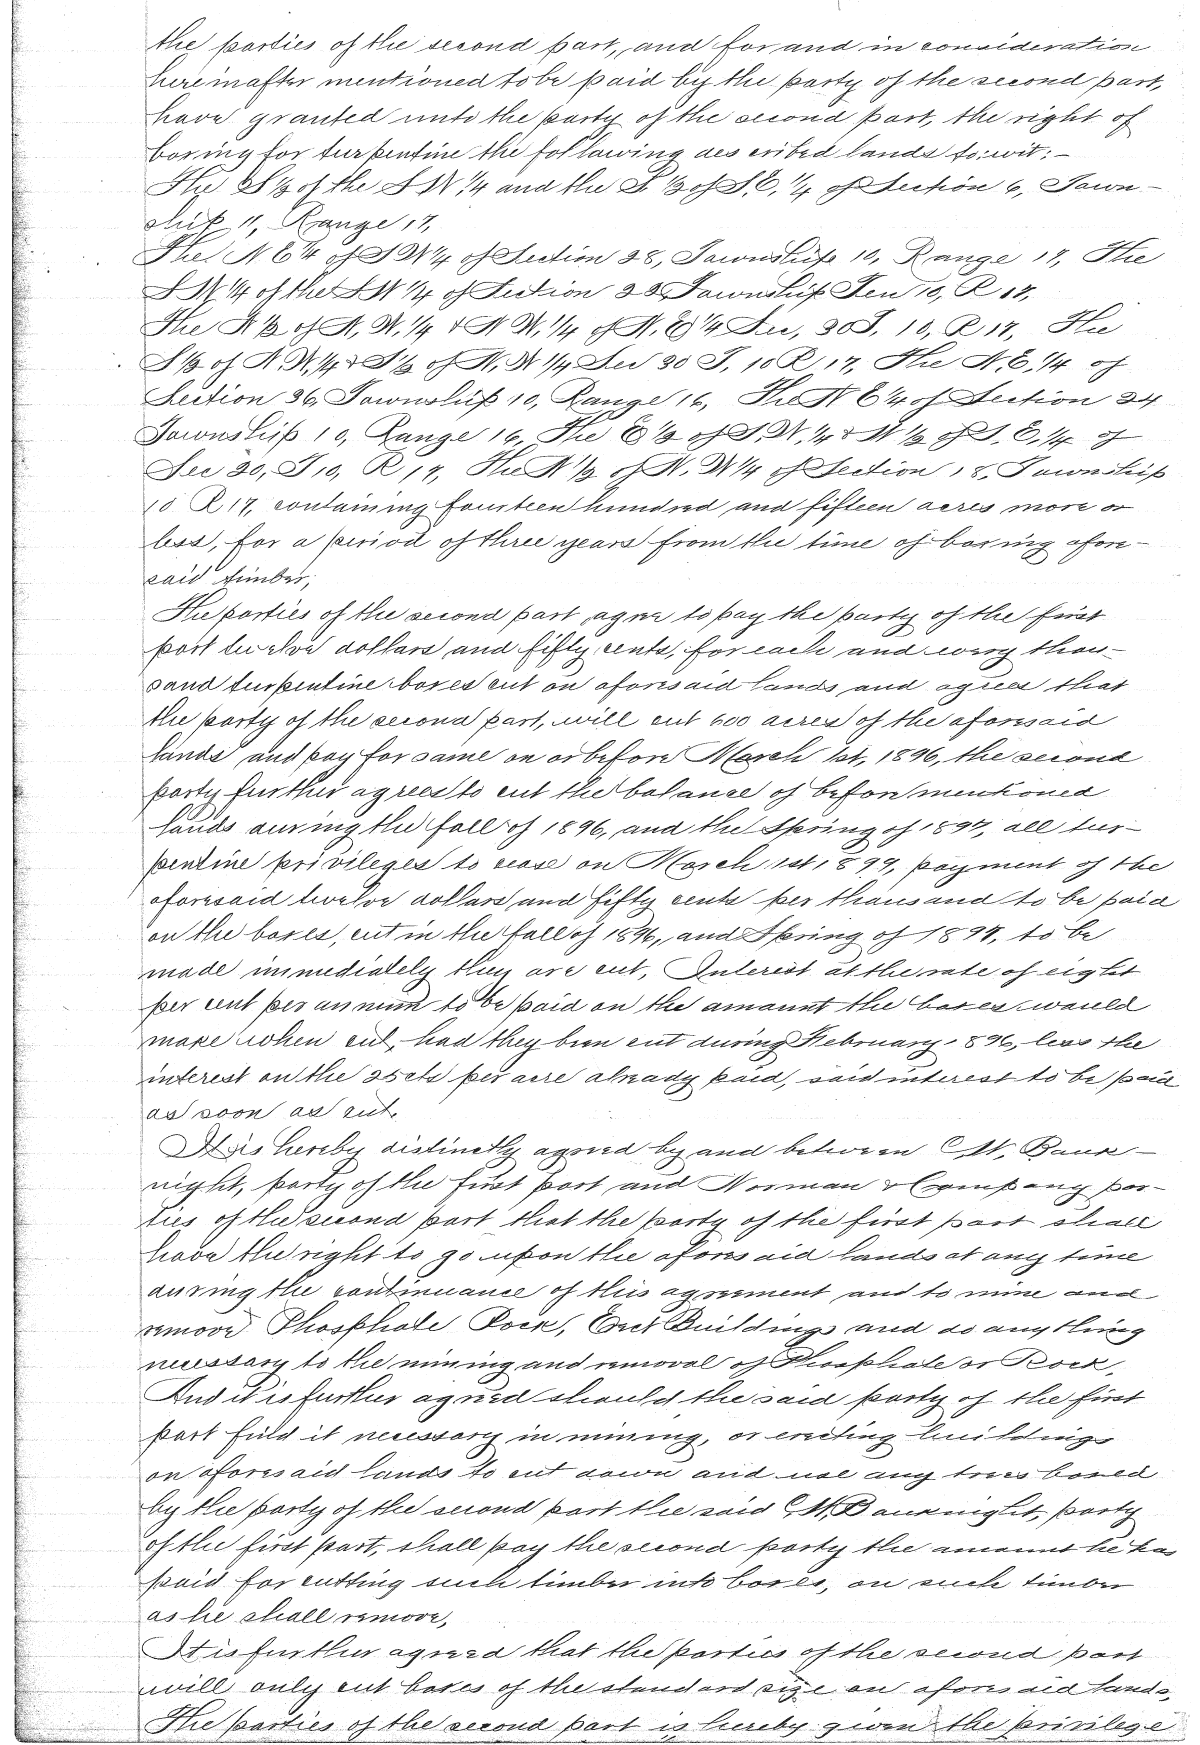 the parties of the second part, and for and in consideration
hereinafter mentioned to be paid by the party of the second part,
have granted unto the party of the second part, the right of
boxing for turpentine the following described lands to:wit:-
The S½ of the SW,¼ and the S ½ of S,E,¼ of Section 6, Town-
ship 11, Range 17,
The NE¼ of SW¼ of Section 28, Township 10, Range 17, The
SW¼ of the SW ¼ of Section 22 Township Ten 10, R 17,
The N½ of N,W,¼ & NW,¼ of N,E¼ Sec, 30 T, 10, R 17, The
S½ of N,W,¼ & S½ of N,W¼ Sec 20 T, 10 R, 17, The N,E,¼ of
Section 36, Township 10, Range 16, The NE¼ of Section 24
Township 10, Range 16, The E½ of S,W,¼ & W ½ of S,E,¼ of
Sec 30, T10, R 17, The N½ of N,W¼ of Section 18, Township
10 R17, containing fourteen hundred and fifteen acres more or
less, for a period of three years from the time of boxing afore-
said timber,
The parties of the second part agree to pay the party of the first
part twelve dollars and fifty cents, for each and every thou-
sand turpentine boxes cut on aforesaid lands and agrees that
the party of the second part, will cut 600 acres of the aforesaid
lands and pay for same on or before March 1st, 1896, the second
party further agrees to cut the balance of before mentioned
lands during the fall of 1896, and the Spring of 1897, all tur-
pentine privileges to cease on March 1st, 1899, payment of the
aforesaid twelve dollars and fifty cents per thousand to be paid
on the boxes, cut in the fall of 1896, and Spring of 1897, to be
made immediately they are cut, Interest at the rate of eight
per cent per annum to be paid on the amount the boxes would
make when cut, had they been cut during February 1896, less the
interest on the 25cts per acre already paid, said interest to be paid
as soon as cut.
It is hereby distinctly agreed by and between C M, Bauk-
night, party of the first part and Norman & Company par-
ties of the second part that the party of the first part shall
have the right to go upon the aforesaid lands at any time
during the continuance of this agreement and to mine and
remove Phosphate Rock, Erect Buildings and do anything
necessary to the mining and removal of Phosphate or Rock,
And it is further agreed should the said party of the first
part find it necessary in mining, or erecting buildings
on aforesaid lands to cut down and use any trees boxed
by the party of the second part the said C M, Bauknight, party
of the first part, shall pay the second party the amount he has
paid for cutting such timber into boxes, on such timber
as he shall remove,
It is further agreed that the parties of the second part
will only cut boxes of the standard size on aforesaid lands,
The parties of the second part is hereby given the privilege